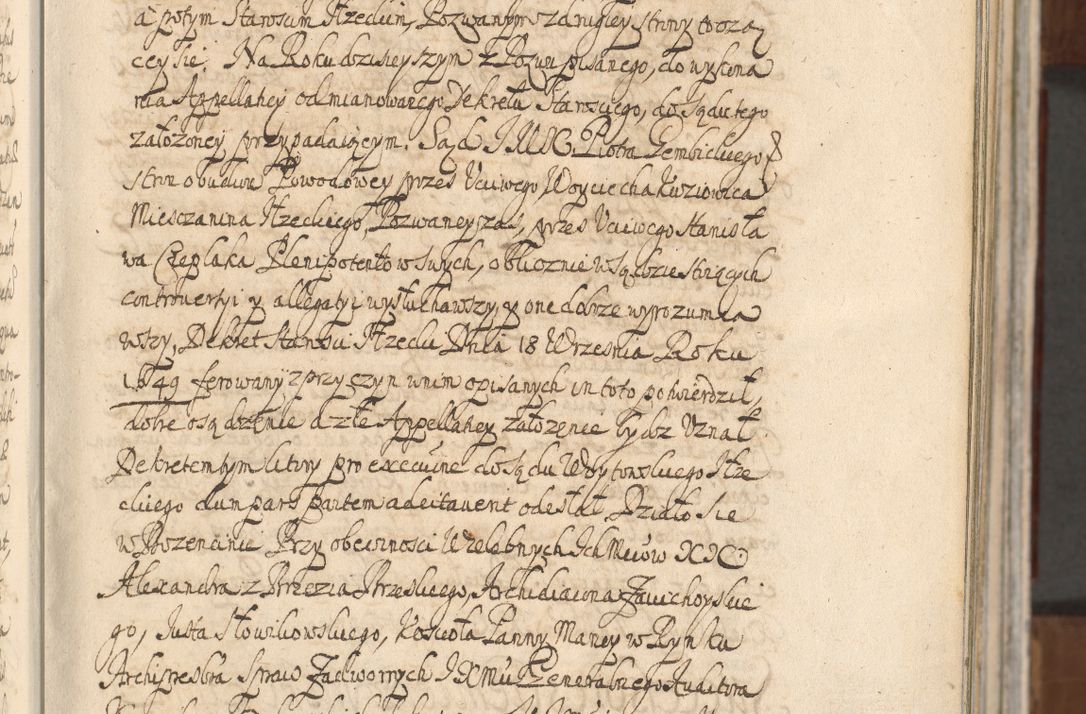 a potym Starosum Iłzeckim, Pozwanym z drugiey strony toczą
cey sie. Na Roku dzisieyszym z Pozwu pisanego, do wykona
nia Appellaciey odmianowanego Dekretu Starosciego, do Sądu tego
założoney przypadaiącym. Sąd IMX Piotra Gembickiego
stron obudwu Powodowey przes Vcciwego Woyciecha Kuziowica
Miesczanina Iłzeckiego, Pozwaney zas, przes Vcciwego Stanisła
wa Czeplaka Plenipotentow swych, oblicznie w sądzie stoiących
controuersyi y allegatyi wysłuchawszy, y one dobrze wyrozumia
wszy, Dekret Starosci Iłzecki Dnia 18 Wrzesnia Roku
1649 ferowany z przyczyn w nim opisanych in toto potwierdził,
dobre osądzenie a złe Appellaciey założenie bydz Vznał
Dekretem tym litory pro executione do Sądu Woytowskiego Iłze
ckiego dum pars partem adcitauerit odesłał Działo sie
w Bozencinie Przy obecnosci Wielebnych Ich Mciow XX:
Alexandra z Brzezia Brzeskiego, Archidiacona Zawichoyskie
go, Justa Słowikowskiego, Kosciola Panny Maryey w Rynku
Archipresbra Spraw Zadwornych IXMci Generalnego Auditora